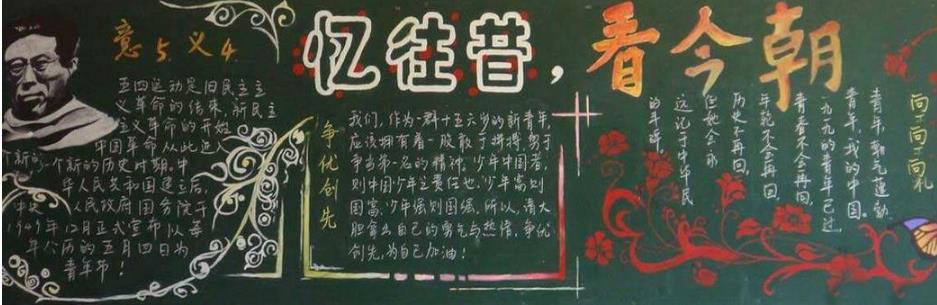 意5义4
五四运动是旧民主主
义革命的结束,新民主
主义革命的开始
中国革命从此进入
个新的一个新的历史时期。中
华人民共和国建立后,
中央人民政府国务院于
1949年12月正式宣布以每
年公历的五月四日为
青年节!
忆往昔,看今朝
争优创先
我们,作为一群十五六岁的新青年,
应该拥有着一股敢于拼搏,勇于
争当第一名的精神。少年中国者,
则中国少年之责任也。少年富则
国富,少年强则国强。所以,请大
胆拿出自己的勇气与热情,争优
创先,为自己加油!
青年,朝气蓬勃
青年,我的中国。
一九一九的青年已过,
青春不会再回,
年轮不会再回,
历史不再回,
但她会永
远记于中华民
的年轮。